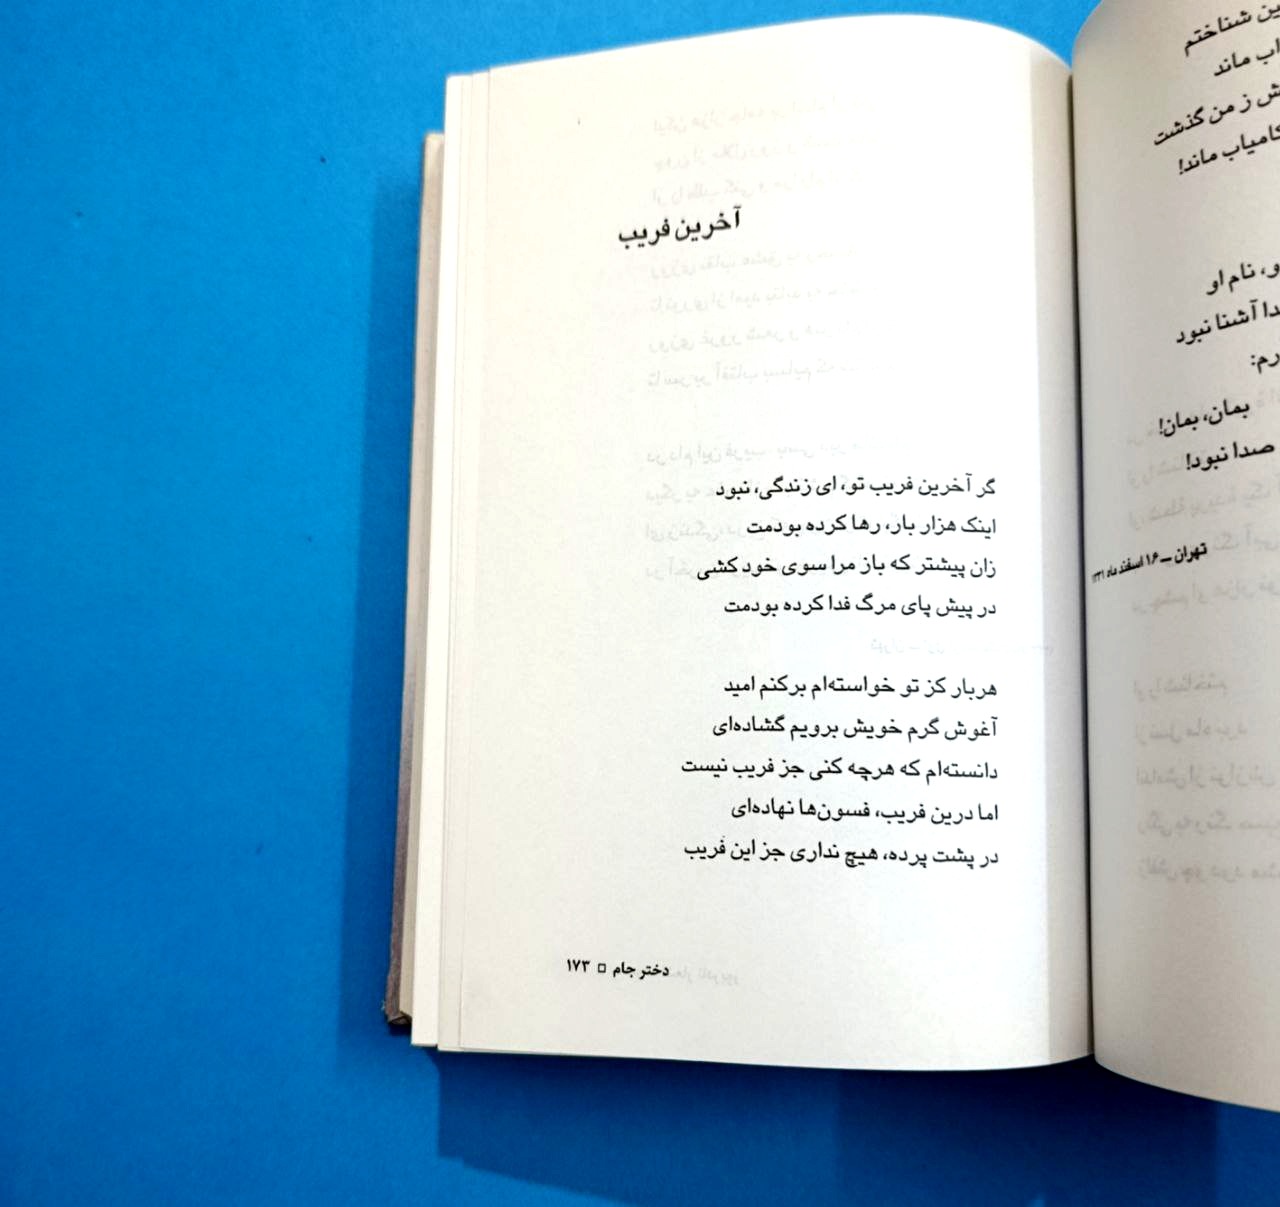 آخرین فریب
گر آخرین فریب تو، ای زندگی، نبود
اینک هزار بار، رها کرده بودمت
زان پیشتر که باز مرا سوی خود کشی
در پیش پای مرگ فدا کرده بودمت
هربار کز تو خواسته‌ام برکنم امید
آغوش گرم خویش برویم گشاده‌ای
دانسته‌ام که هرچه کنی جز فریب نیست
اما درین فریب، فسون‌ها نهاده‌ای
در پشت پرده، هیچ نداری جز این فریب
دختر جام □ ۱۷۳
شناختم
ماند
ز من گذشت
کامیاب ماند!
نام او
آشنا نبود
بمان، بمان!
صدا نبود!
تهران – ۱۶ اسفند ماه ۱۳۳۱